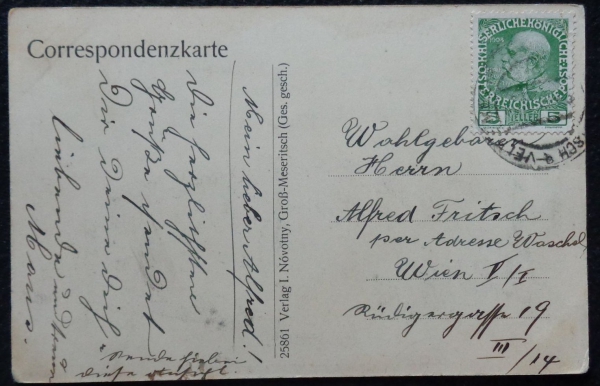 Correspondenzkarte
Mein lieber Alfred!
Die herzlichsten
Grüße sendet
Dir Deine Dich
liebende
Mama.
Sende hiebei
diese
25861 Verlag I. Novotny, Groß-Meseritsch (Ges. gesch.)
KAISERLICHE KÖNIGLICHE
ÖSTERREICHISCHE
5 HELLER 5
Wohlgeboren
Herrn
Alfred Fritsch
per Adresse Waschel
Wien V/I
Rüdigergasse 19
III/14